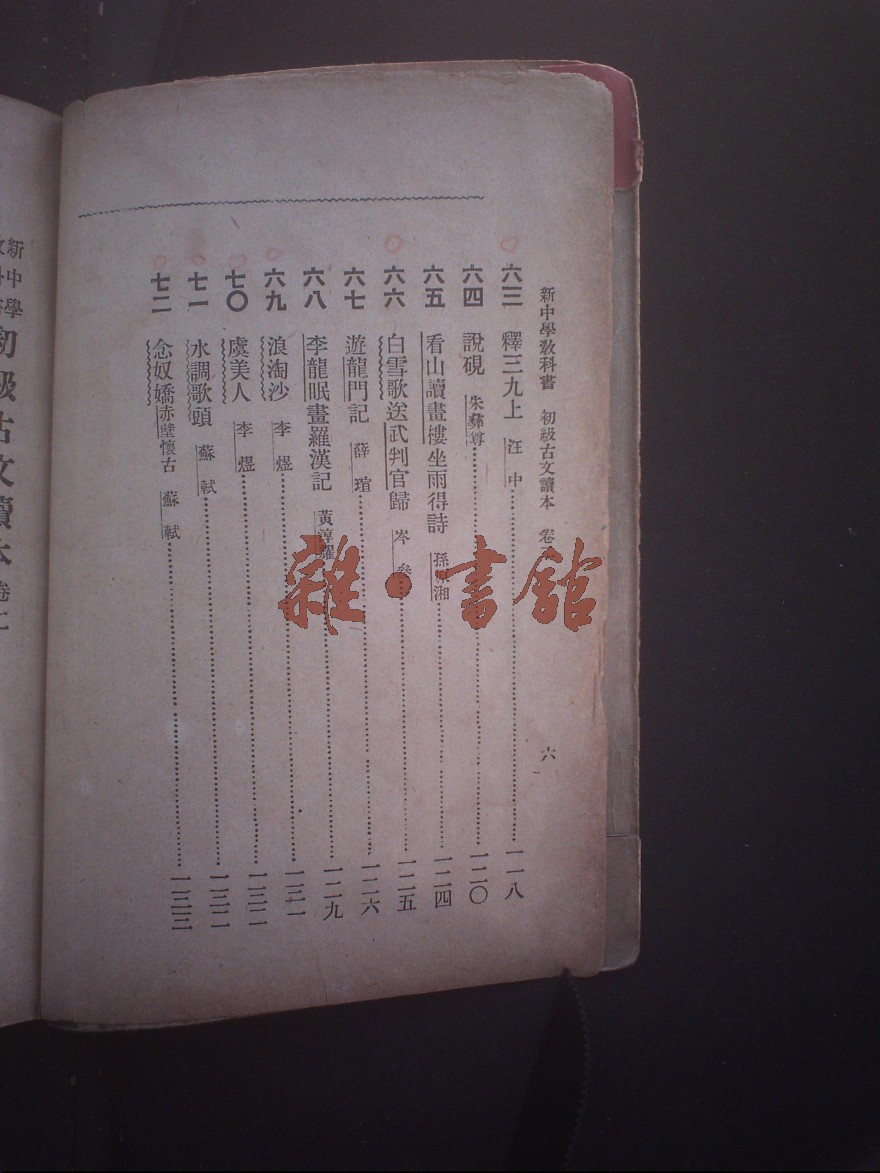 新中學教科書 初級古文讀本 卷
六
六三 釋三九上 汪中 一一八
六四 說硯 朱彝尊 一二〇
六五 看山讀畫樓坐雨得詩 孫湘 一二四
六六 白雪歌送武判官歸 岑參 一二五
六七 遊龍門記 薛瑄 一二六
六八 李龍眠畫羅漢記 黃淳耀 一二九
六九 浪淘沙 李煜 一三一
七〇 虞美人 李煜 一三二
七一 水調歌頭 蘇軾 一三二
七二 念奴嬌赤壁懷古 蘇軾 一三三
新中學
初級古文讀本 卷二
雜·書館